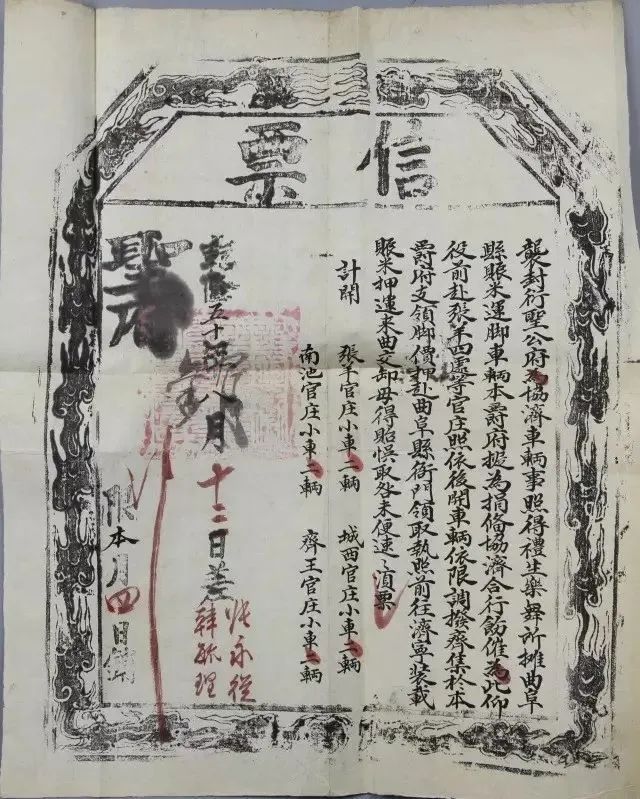 信票
襲封衍聖公府為協濟車輛事照得禮生樂舞所攤曲阜
縣賑米運脚車輛本爵府擬為捐俻協濟合行飭催為此仰
役前赴張羊四處等官庄照依後開車輛依限調撥齊集於本
爵府支領脚價押赴曲阜縣衙門領取執照前往濟寧裝載
賑米押運來曲交卸毋得貽悞取咎未便速〻須票
計開 張羊官庄小車二輛 城西官庄小車二輛
南池官庄小車二輛 齊王官庄小車二輛
乾隆五十年八月十二日差
張永從
韓
理
限本月四日銷